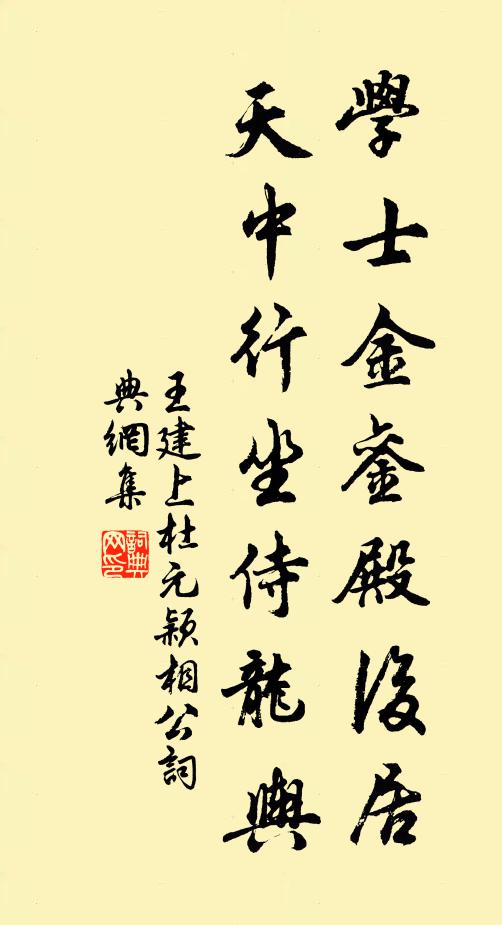 學士金鑾殿後居
天中行坐侍龍輿
王建上杜元穎相公詞
典網集
詞典
网印